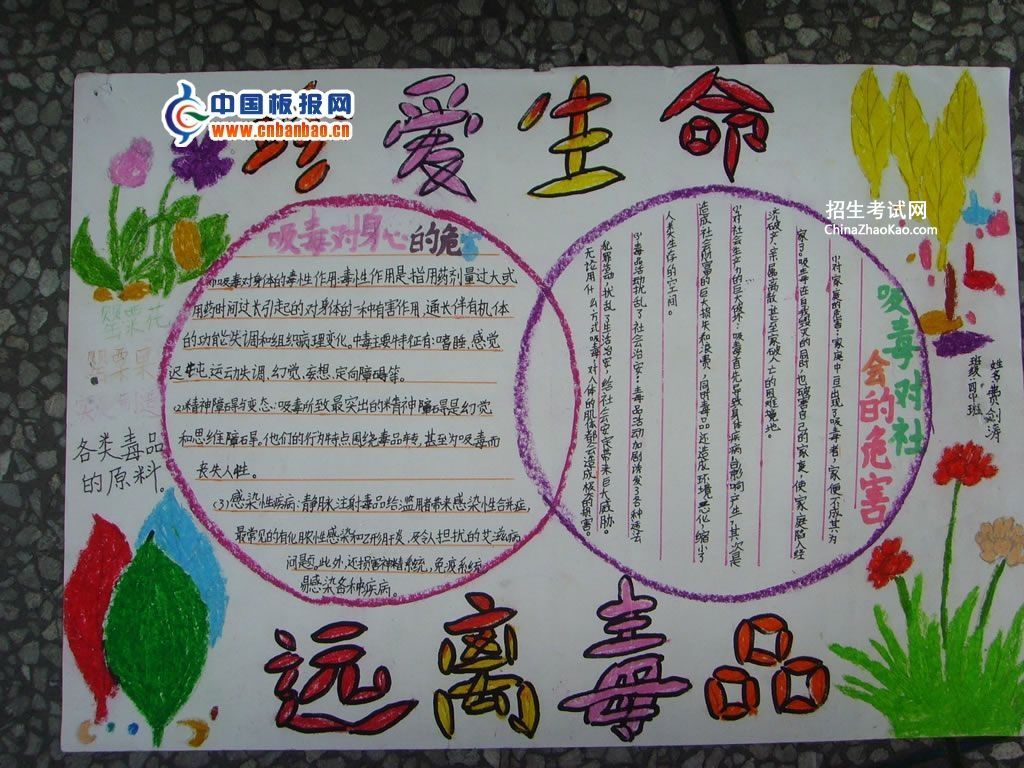 中国板报网
www.cnbanbao.cn
珍爱生命
招生考试网
ChinaZhaoKao.com
吸毒对身心的危
⑴吸毒对身体的毒性作用:毒性作用是指用药剂量过大或
用药时间过长引起的对身体的一种有害作用,通常伴有机体
的功能失调和组织病理变化。中毒主要特征有:嗜睡、感觉
迟钝、运动失调、幻觉、妄想、定向障碍等。
⑵精神障碍与变态:吸毒所致最突出的精神障碍是幻觉
和思维障碍。他们的行为特点围绕毒品转,甚至为吸毒而
丧失人性。
(3)感染性疾病:静脉注射毒品给滥用者带来感染性合并症,
最常见的有化脓性感染和乙形肝炎,及令人担扰的艾滋病
问题。此外,还损害神精系统,免疫系统,
易感染各种疾病。
吸毒对社
会的危害
⑴对家庭的危害:家庭中一旦出现了吸毒者,家便不成其为
家了。吸毒者在自我毁灭的同时,也破害自己的家庭,使家庭陷入经
济破产、亲属离散、甚至家破人亡的困难境地。
⑵对社会生产力的巨大破坏:吸毒首先导致身体疾病,影响产生,其次是
造成社会财富的巨大损失和浪费,同时毒品还造成环境恶化,缩小了
人类生存的空间。
⑶毒品活动扰乱了社会治安:毒品活动加剧诱发了各种违法
犯罪活动,扰乱了生活治安,给社会安定带来巨大威胁。
无论用什么方式吸毒,对人体的肌体都会造成极大的损害。
姓名:费剑涛
罂粟花
罂粟果
各类毒品
的原料。
远离毒品